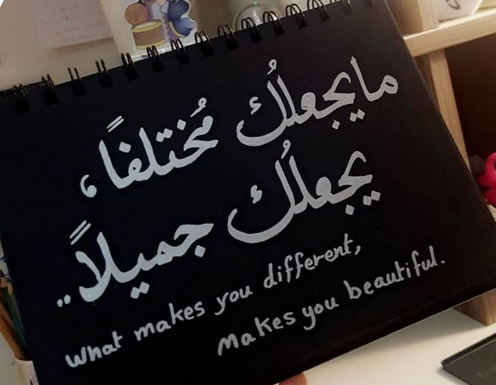 ما يجعلُك مُختلفاً،
يجعلُك جميلاً..
What makes you different,
makes you beautiful.